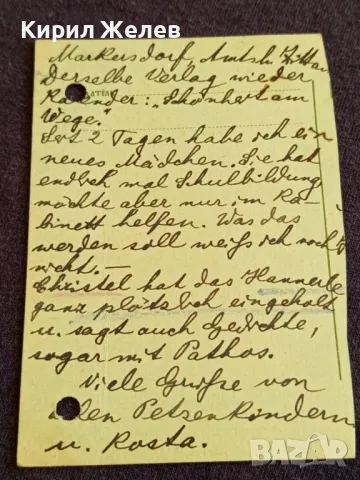 Кирил Желев
Markersdorf, Amtsh. Zittau
Derselbe Verlag wieder
Kalender: "Schönheit am
Wege."
Seit 2 Tagen habe ich ein
neues Mädchen. Sie hat
endlich mal Schulbildung
möchte aber nur im Ka-
binett helfen. Was das
werden soll weiß ich noch
nicht. —
Christel hat das Hannerle
ganz plötzlich eingeholt
u. sagt auch Gedichte,
sogar mit Pathos.
Viele Grüße von
allen Petzenkindern
u. Rosta.
bazar.bg